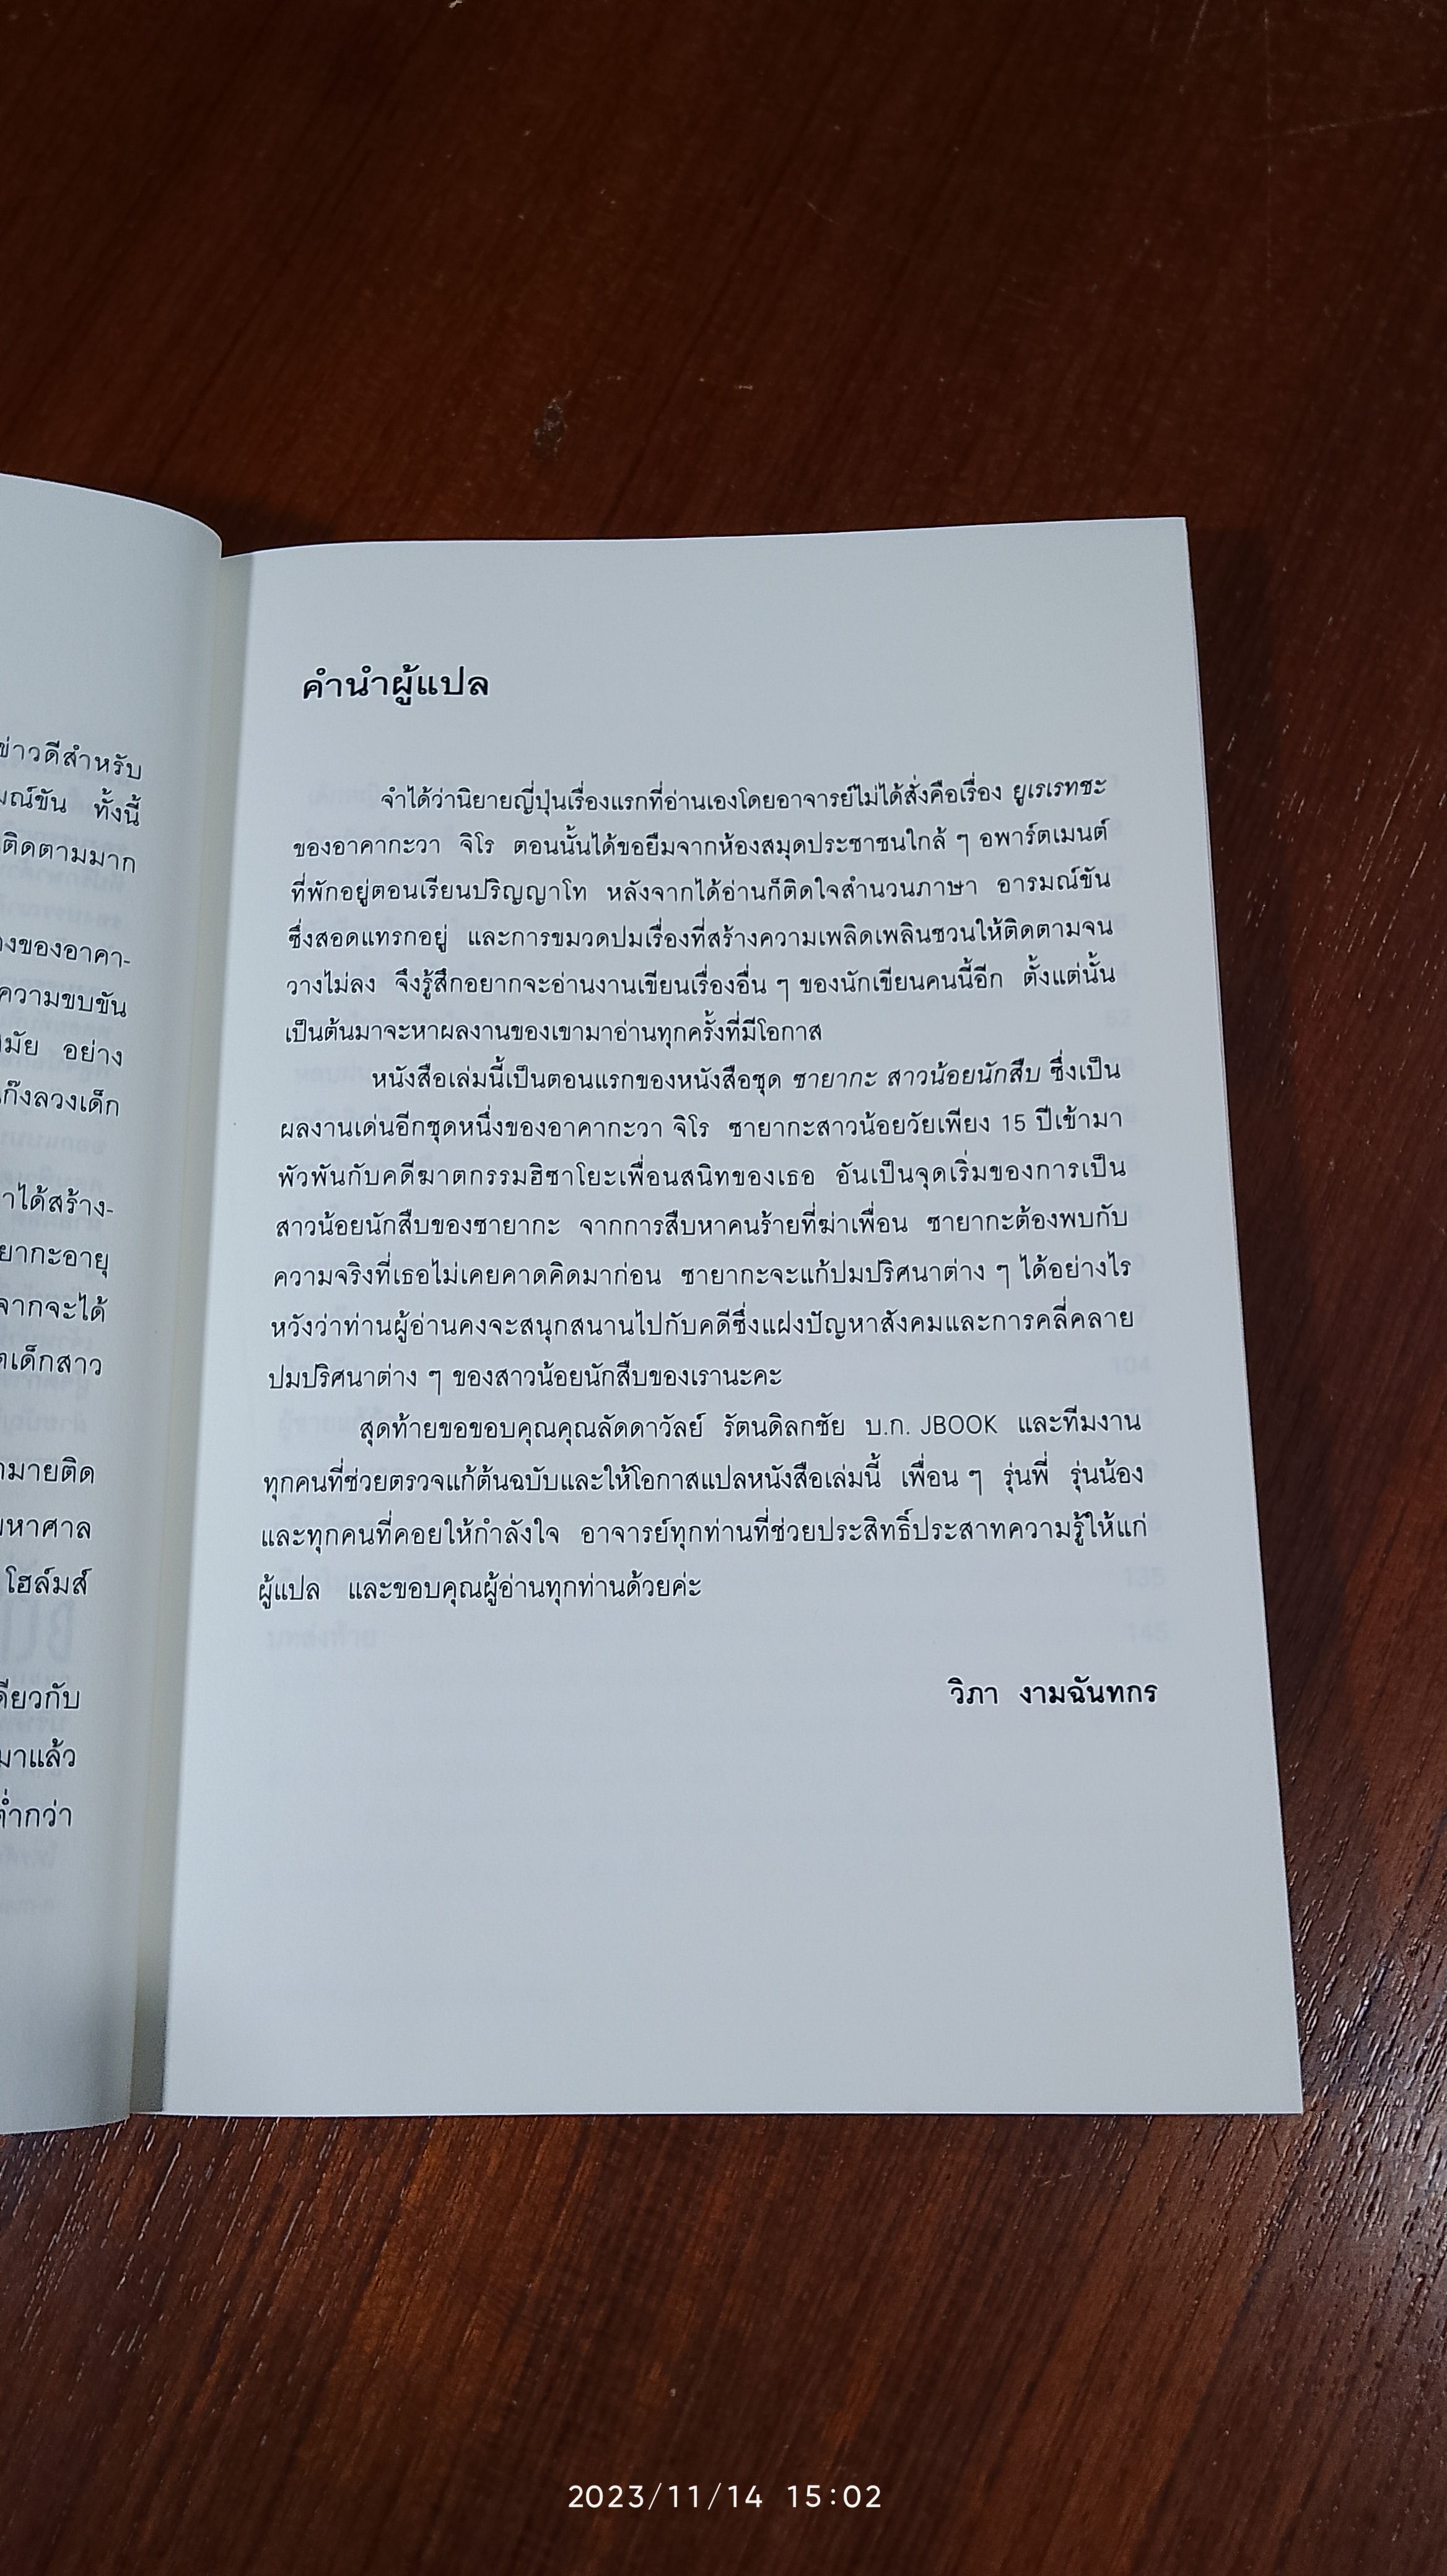 ข่าวดีสำหรับ
ทั้งนี้
ติดตามมาก
ของอาคา-
ความขบขัน
อย่าง
ลวงเด็ก
ได้สร้าง-
อายุ
จากจะได้
เด็กสาว
ติด
มหาศาล
โฮล์มส์
เดียวกับ
มาแล้ว
ต่ำกว่า
คำนำผู้แปล
จำได้ว่านิยายญี่ปุ่นเรื่องแรกที่อ่านเองโดยอาจารย์ไม่ได้สั่งคือเรื่อง ยูเรเรทชะ
ของอาคากะวา จิโร ตอนนั้นได้ขอยืมจากห้องสมุดประชาชนใกล้ ๆ อพาร์ตเมนต์
ที่พักอยู่ตอนเรียนปริญญาโท หลังจากได้อ่านก็ติดใจสำนวนภาษา อารมณ์ขัน
ซึ่งสอดแทรกอยู่ และการขมวดปมเรื่องที่สร้างความเพลิดเพลินชวนให้ติดตามจน
วางไม่ลง จึงรู้สึกอยากจะอ่านงานเขียนเรื่องอื่น ๆ ของนักเขียนคนนี้อีก ตั้งแต่นั้น
เป็นต้นมาจะหาผลงานของเขามาอ่านทุกครั้งที่มีโอกาส
หนังสือเล่มนี้เป็นตอนแรกของหนังสือชุด ซายากะ สาวน้อยนักสืบ ซึ่งเป็น
ผลงานเด่นอีกชุดหนึ่งของอาคากะวา จิโร ซายากะสาวน้อยวัยเพียง 15 ปีเข้ามา
พัวพันกับคดีฆาตกรรมฮิซาโยะเพื่อนสนิทของเธอ อันเป็นจุดเริ่มของการเป็น
สาวน้อยนักสืบของซายากะ จากการสืบหาคนร้ายที่ฆ่าเพื่อน ซายากะต้องพบกับ
ความจริงที่เธอไม่เคยคาดคิดมาก่อน ซายากะจะแก้ปมปริศนาต่าง ๆ ได้อย่างไร
หวังว่าท่านผู้อ่านคงจะสนุกสนานไปกับคดีซึ่งแฝงปัญหาสังคมและการคลี่คลาย
ปมปริศนาต่าง ๆ ของสาวน้อยนักสืบของเรานะคะ
สุดท้ายขอขอบคุณคุณลัดดาวัลย์ รัตนดิลกชัย บ.ก. JBOOK และทีมงาน
ทุกคนที่ช่วยตรวจแก้ต้นฉบับและให้โอกาสแปลหนังสือเล่มนี้ เพื่อน ๆ รุ่นพี่ รุ่นน้อง
และทุกคนที่คอยให้กำลังใจ อาจารย์ทุกท่านที่ช่วยประสิทธิ์ประสาทความรู้ให้แก่
ผู้แปล และขอบคุณผู้อ่านทุกท่านด้วยค่ะ
วิภา งามฉันทกร
2023/11/14 15:02